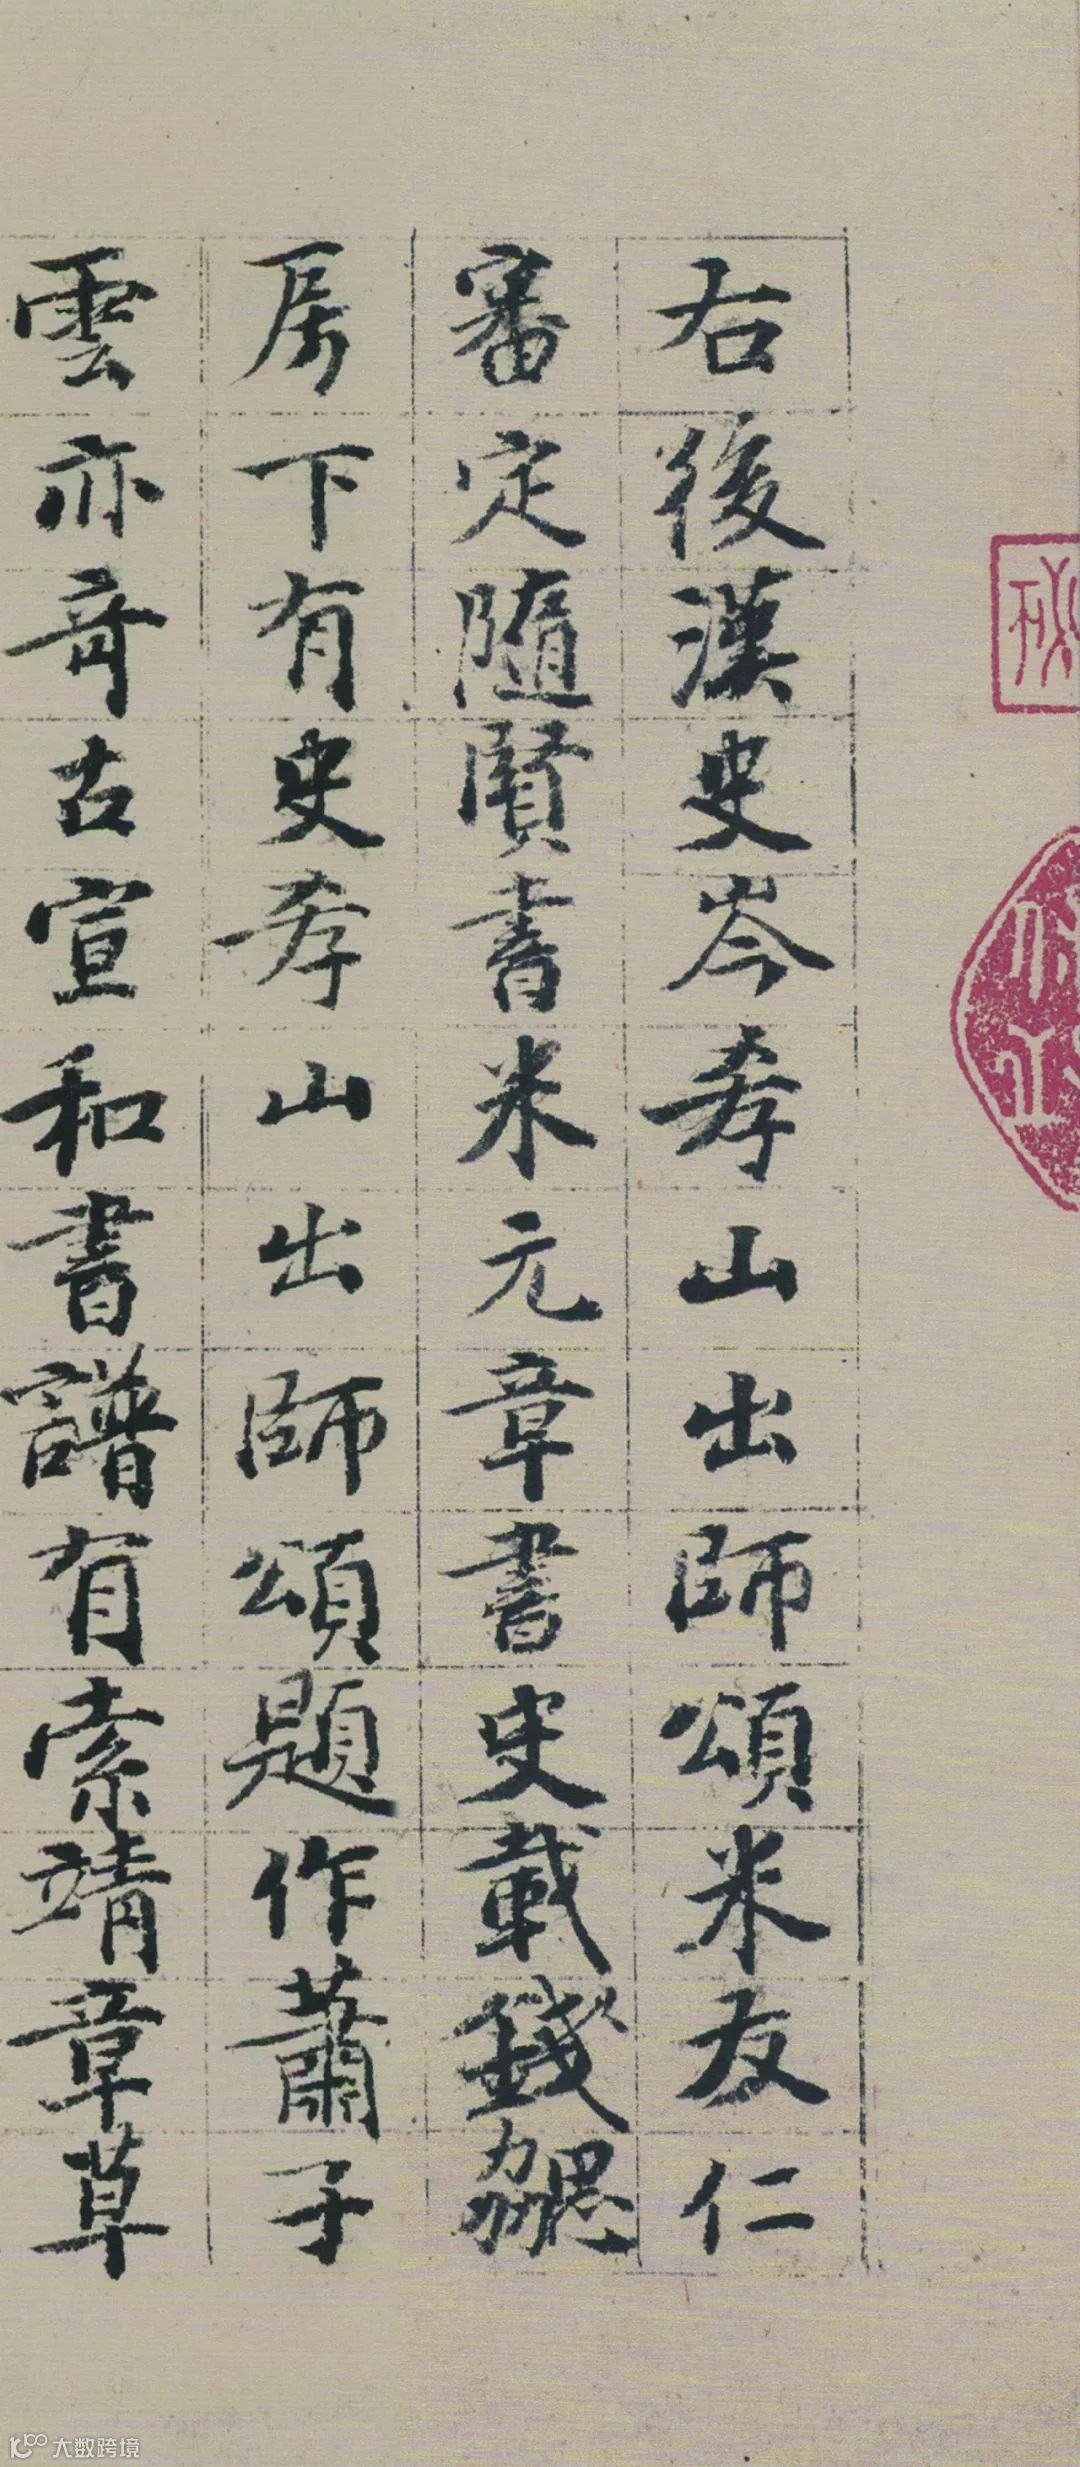 右後漢史岑孝山出師頌米友仁
審定隨賢書米元章書史載錢勰
房下有史孝山出師頌題作蕭子
雲亦奇古宣和書譜有索靖章草
大数跨境